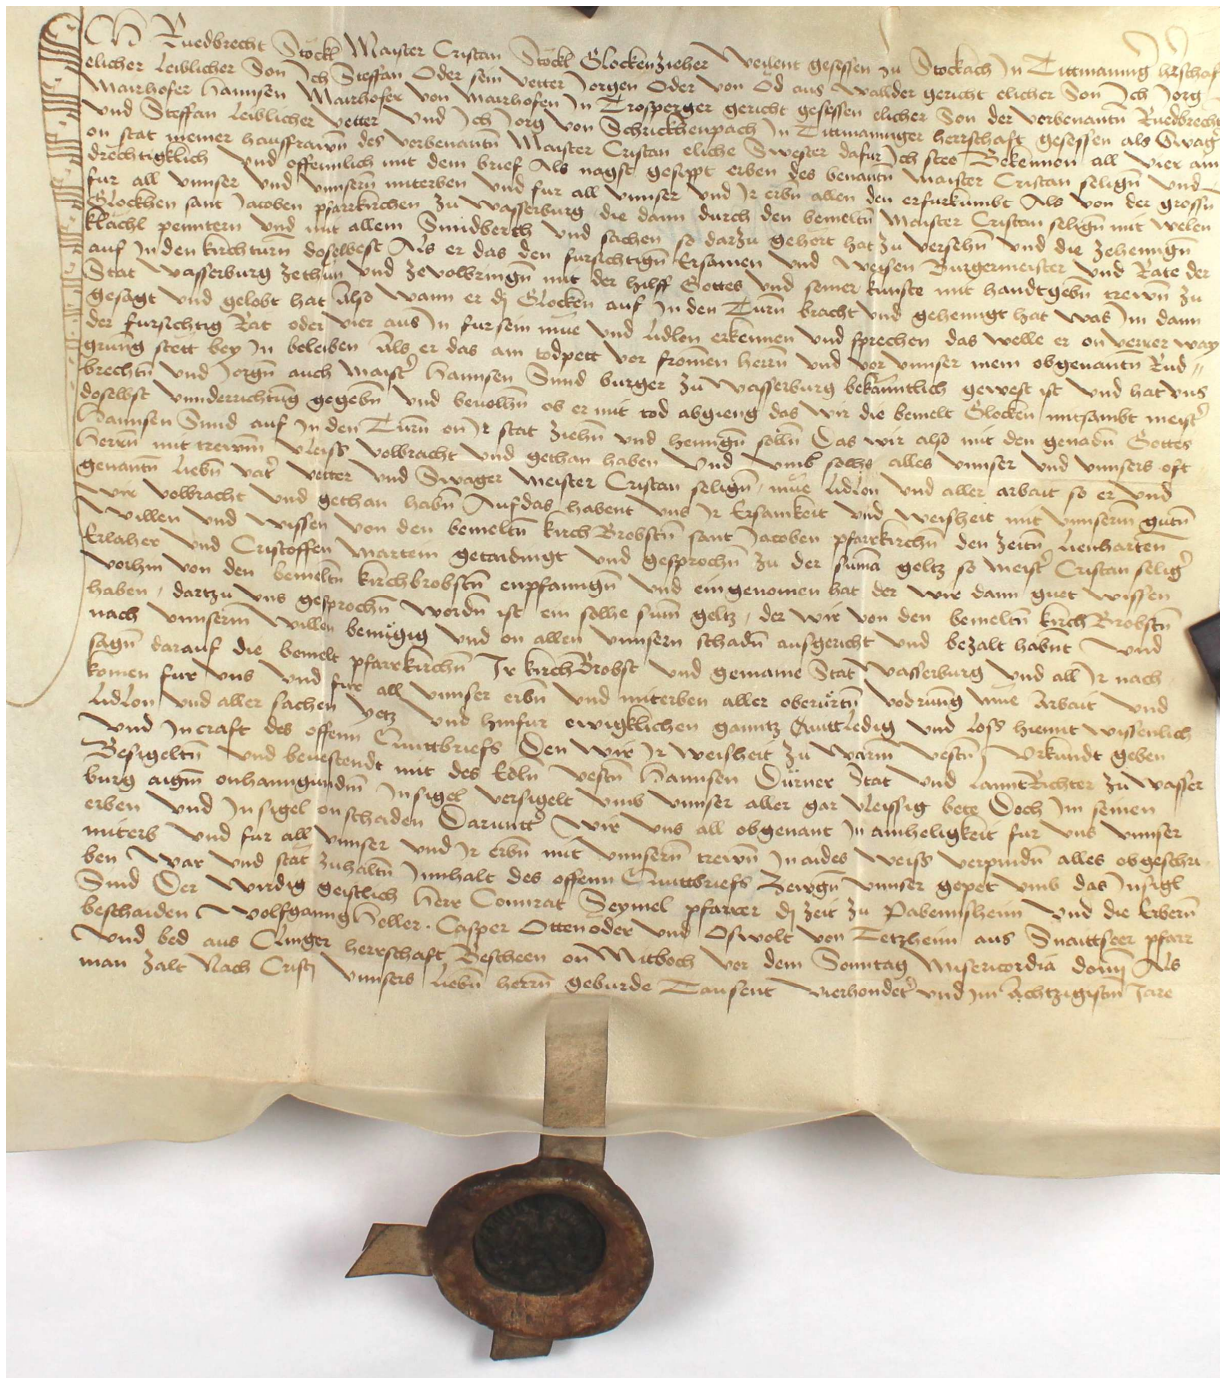 Ich Ruedbrecht Stöckl Maister Cristan Stöckl Glockenzieher Weilent gesessen zu Stockach In Tittmaning
elicher Leiblicher Son Ich Steffan Oder sein Vetter Jorgen Oder von Öd aus Wallder gericht elicher Son Ich Jorg
Mairhofer Hannsen Mairhofer von Mairhofen In Trosperger gericht gesessen elicher Son der vorbenantn Ruedbrecht
und Steffan Leiblicher Vetter Und Ich Jorg von Schrickhenpach In Tittmaninger herrschaft gesessen als Swager
on stat meiner hausfrawn des vorbenantn Maister Cristan eliche Swester dafur Ich stee Bekennen all vier am
drechtigklich und offennlich mit dem brief Als nagst gesypt erben des benantn Maister Cristan selign und
fur all unnser und unnsern miterben und fur all unnser und Ir erbn allen den erfurkumbt Als von der grossn
Glockhen sant Jacoben pfarrkirchen zu Wasserburg die dann durch den bemeltn Maister Cristan selign mit welen
klächl penntern und mit allem Sundberth und sachen so darzu gehort hat zu versehn und die zehenngn
auf In den kirchturn doselbest Als er das den fursichtign Ersamen und Weisen Burgermeister und Rate der
Stat Wasserburg zethun und zevolbringn mit der hilff Gottes und seiner kunste mit handtgebn trewn zu
gesagt und gelobt hat Also wann er dj Glocken auf In den Turn bracht und gehenngt hat was Im dann
der fursichtig Rat oder vier aus In fur sein mue und Lidlon erkennen und sprechen das welle er on verrer way
grung stett bey In beleiben Als er das am todpett vor fromen herrn und vor unnser mein obgenantn Rud//
brechtn und Jorgn auch Maister Hannsen Smid burger zu Wasserburg bekanntlich gewest ist und hat uns
doselbst unnderrichtung gegebn und bevolhn ob er mit tod abgieng das wir die bemelt Glocken mitsambt meister
Hannsen Smid auf In den Turn on Ir stat ziehn und henngn solln Das wir also mit den genadn Gottes
Herrn mit trewm vleiss volbracht und gethan haben Und umb solhs alles unnser und unnsers oft
genantn Liebn vater vetter und Swager Meister Cristan selign mue Lidlon und aller arbait so er und
wir volbracht und gethan habn Auf das habent uns Ir Ersamkeit und weisheit mit unnserm gutn
willen und wissen von den bemeltn kirch Brobstn sant Jacoben pfarrkirchn den zeitn Lienharten
Erlaher und Cristoffen Martein getaidingt und gesprochn zu der suma geltz so meister Cristan selig
vorhin von den bemeltn kirchbrobstn enpfanngn und eingenomen hat der wir dann guet wissen
haben, dartzu uns gesprochn wordn ist ein solhe sum geltz, der wir von den bemeltn kirch Brobstn
nach unnserm willen benugig und on allen unnsern schadn ausgericht und bezalt habnt Und
sagn darauf die bemelt pfarrkirchn Ir kirchBrobst und gemaine Stat Wasserburg und all Ir nach
komen fur uns und fur all unnser erbn und miterben aller oberurtn vodrung mue Arbait und
Lidlon und aller sachen yetz und hinfur ewigklichen ganntz Quitt Ledig und Loss hiemit wissenlich
und Incraft des offenn Quittbriefs Den wir Ir weisheit zu warm vestn Urkundt geben
Besigeltn und bevestendt mit des Edln vestn Hannsen Durner Stat und LanntRichter zu Wasser
burg aigem onhanngundm Insigel versigelt umb unnser aller gar vleissig bete Doch Im seinen
erben und Insigel onschaden Darunter Wir uns all obgenant In ainheligkeit fur uns unnser
miterb und fur all unnser und Ir erbn mit unnsern trewn In aides weiss verpindn alles obgeschri
ben war und stät zuhaltn Innhalt des offenn Quittbriefs Zewgn unnser gepet umb das Insigl
Sind Der wirdig geistlich Herr Connrat Seymel pfarrer dj zeit zu Pabennsheim und die Erbern
beschaiden Wolfgang Heller. Casper Ottenoder und Oswolt von Tetzheim aus Snaittseer pfarr
und bed aus Clinger herrschaft Bescheen on Mitboch vor dem Sonntag Misericordia domj Als
man zalt Nach Cristj unnsers Liebn herrn geburde Tausent vierhondert und Im Achtzigistm Jare